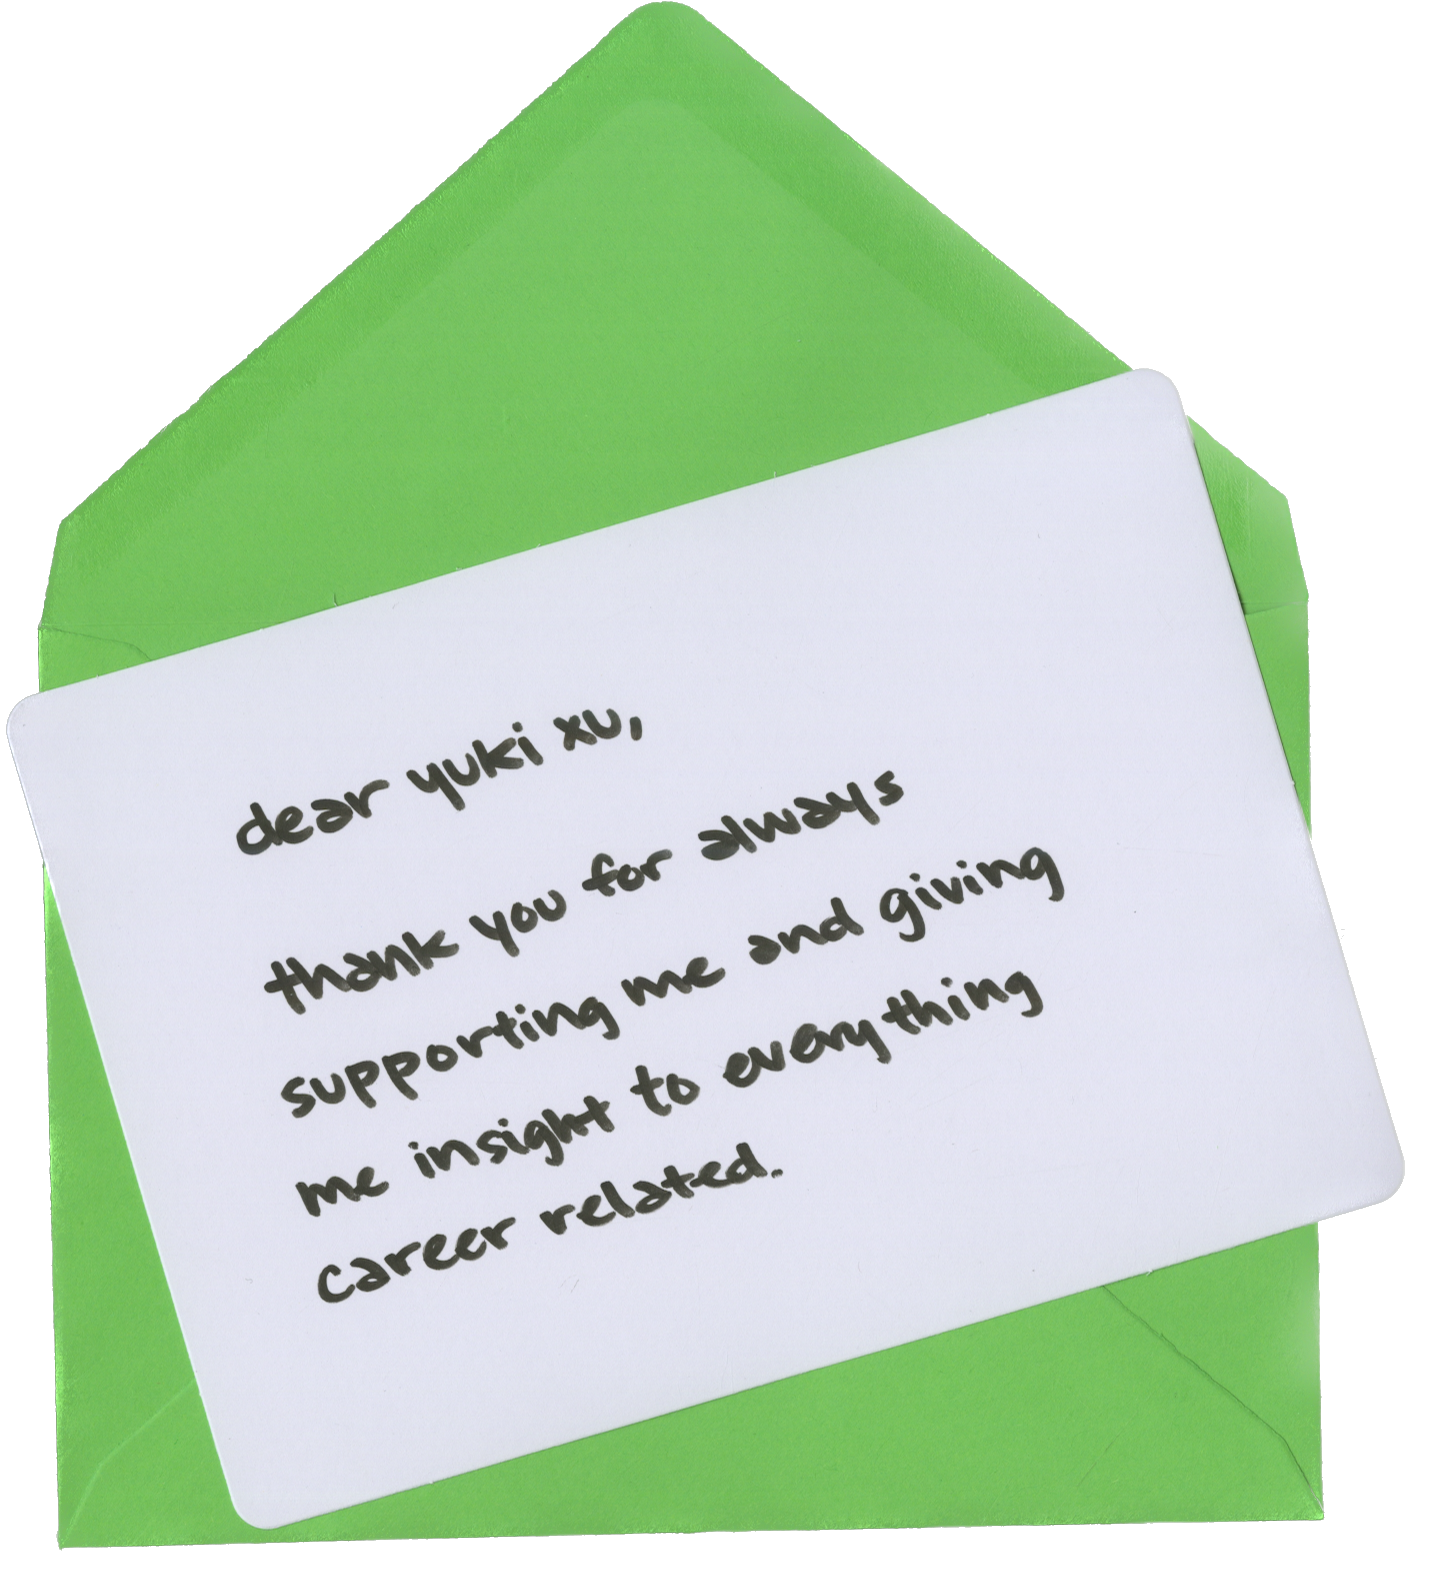 dear yuki xu,
thank you for always
supporting me and giving
me insight to everything
career related.